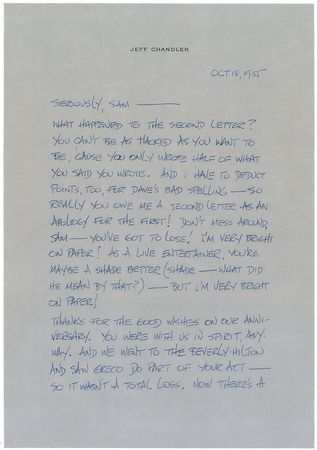 JEFF CHANDLER
OCT 18, 1955
SERIOUSLY, SAM —
WHAT HAPPENED TO THE SECOND LETTER?
YOU CAN'T BE AS THACKED AS YOU WANT TO
BE, CAUSE YOU ONLY WROTE HALF OF WHAT
YOU SAID YOU WROTE. AND I HAVE TO DEDUCT
POINTS, TOO, FOR DAVE'S BAD SPELLING — SO
REALLY YOU OWE ME A SECOND LETTER AS AN
APOLOGY FOR THE FIRST! DON'T MESS AROUND,
SAM — YOU'VE GOT TO LOSE! I'M VERY BRIGHT
ON PAPER! AS A LIVE ENTERTAINER, YOU'RE
MAYBE A SHADE BETTER (SHADE — WHAT DID
HE MEAN BY THAT?) — BUT I'M VERY BRIGHT
ON PAPER!
THANKS FOR THE GOOD WISHES ON OUR ANNI-
VERSARY. YOU WERE WITH US IN SPIRIT, ANY-
WAY. AND WE WENT TO THE BEVERLY-HILTON
AND SAW GRECO DO PART OF YOUR ACT —
SO IT WASN'T A TOTAL LOSS. NOW THERE'S A